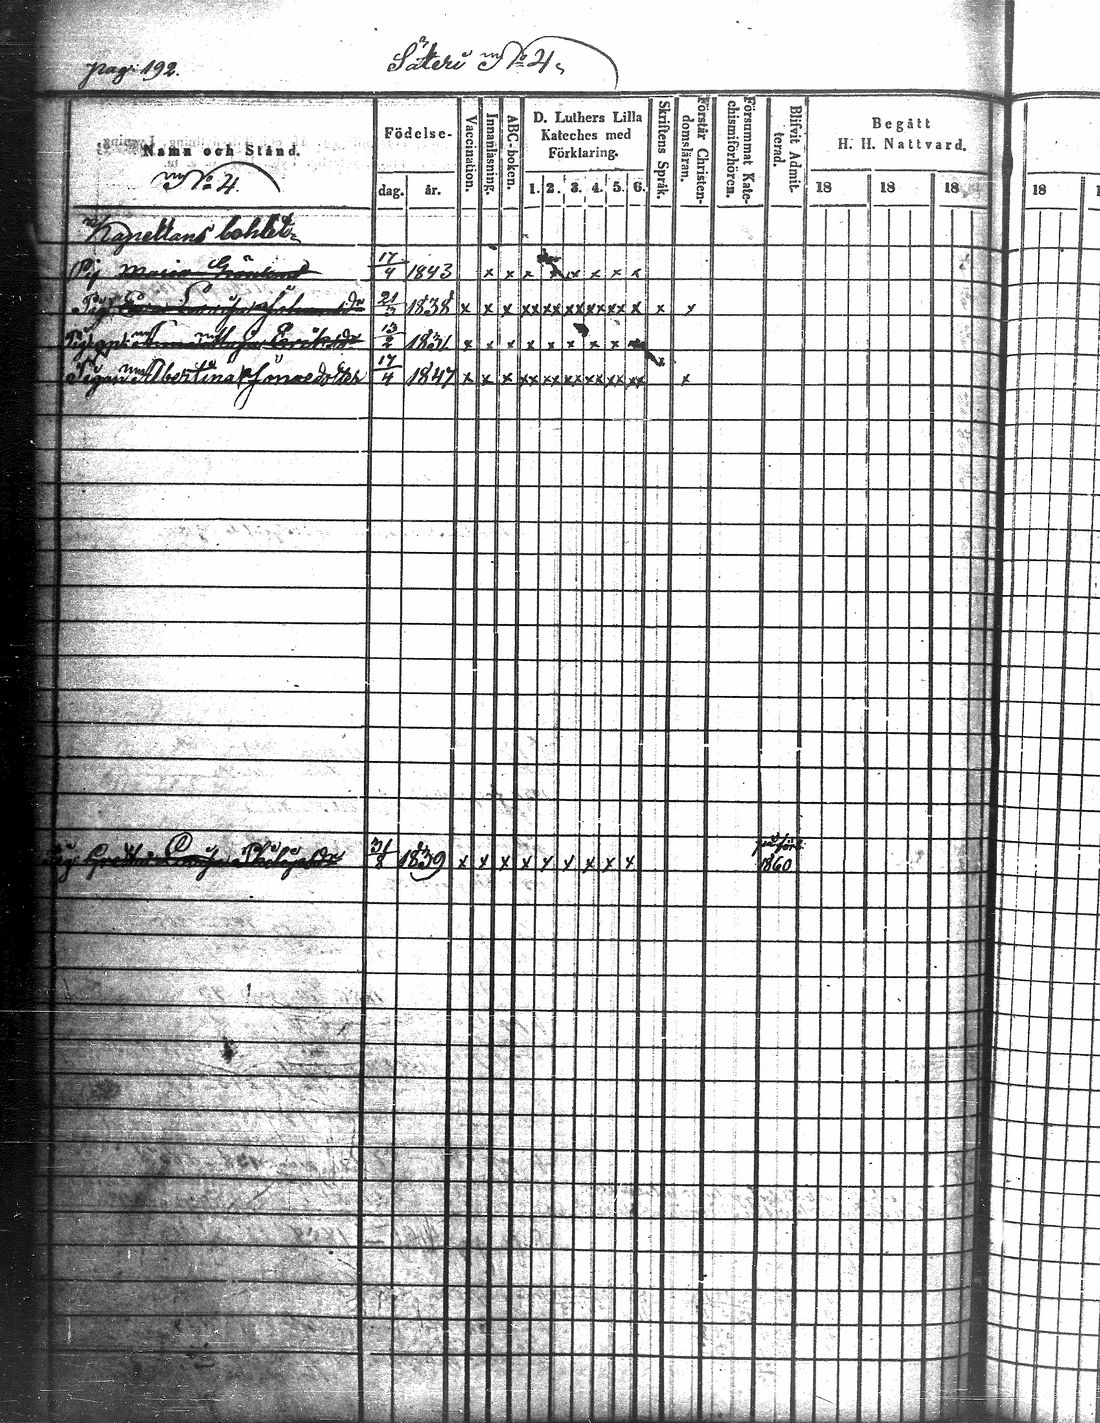 pag: 192.
Säteri No 4.
Namn och Stånd.
No 4.
Födelse-
dag.
år.
Vaccination.
Innanläsning.
ABC-boken.
D. Luthers Lilla
Kateches med
Förklaring.
1. 2. 3. 4. 5. 6.
Skriftens Språk.
Förstår Christen-
domsläran.
Försummat Kate-
chismiförhören.
Blifvit Admit-
terad.
Begått
H. H. Nattvard.
18 18 18
18
Kapellans bohlet
Pig Maria 17/4 1843 x x x x x x x x
Pig Lovisa 1838 x x x xx xx xx xx xx x x x
13/2 1831 x x x x x x x x x x
Pigan Albertina Jonaedotter 17/4 1847 x x x xx xx xx xx xx xx x
Greta 31/8 1839 x x x x x x x x x
1860